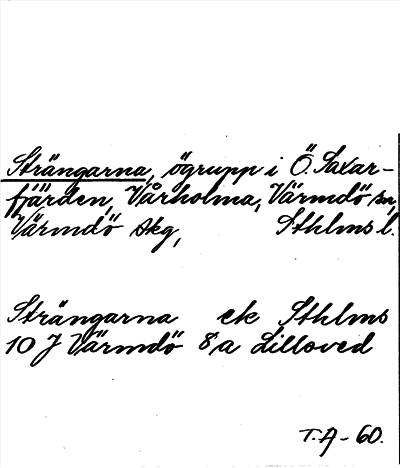 Strängarna, ögrupp i Ö. Saxar-
fjärden, Vårholma, Värmdö sn,
Värmdö skg, Sthlms l.
Strängarna ek Sthlms
10 J Värmdö 8a Lilloved
T.A-60.